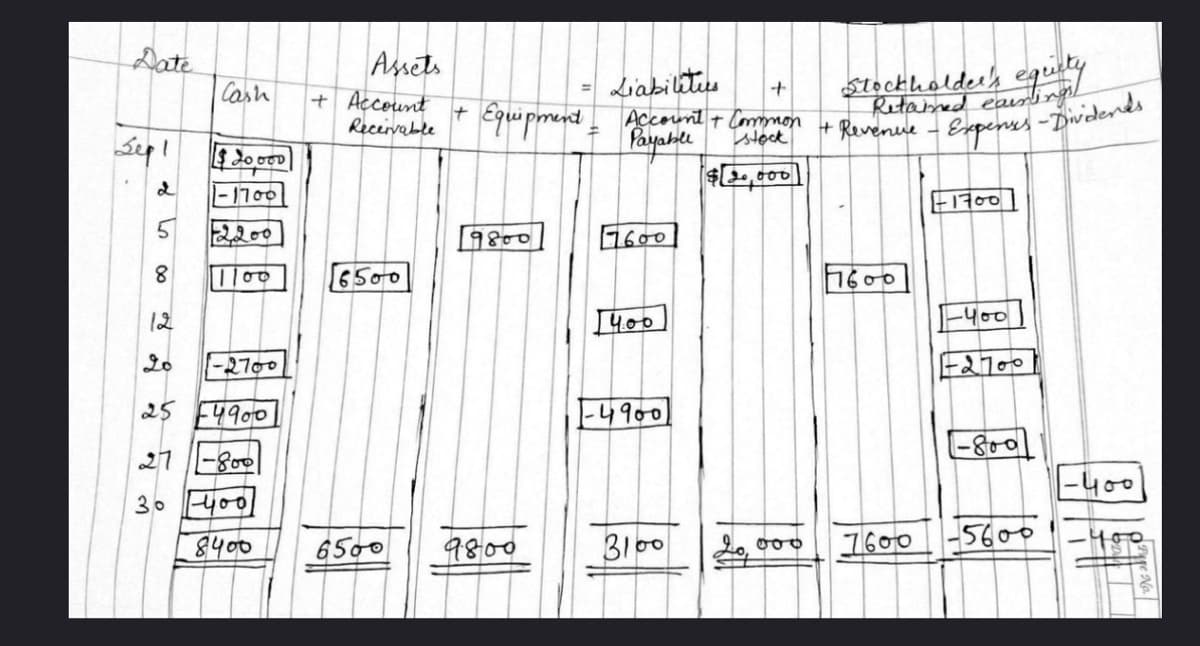 Date Assets = Liabilities + Stockholder's equity
Cash + Account Receivable + Equipment = Account Payable + Common stock + Retained earnings Revenue - Expenses - Dividends
Sep 1 $20,000 $20,000
2 -1700 -1700
5 -2200 9800 7600
8 1100 6500 7600
12 400 -400
20 -2700 -2700
25 -4900 -4900
27 -800 -800
30 -400 -400
8400 6500 9800 3100 20,000 7600 -5600 -400
Page No.